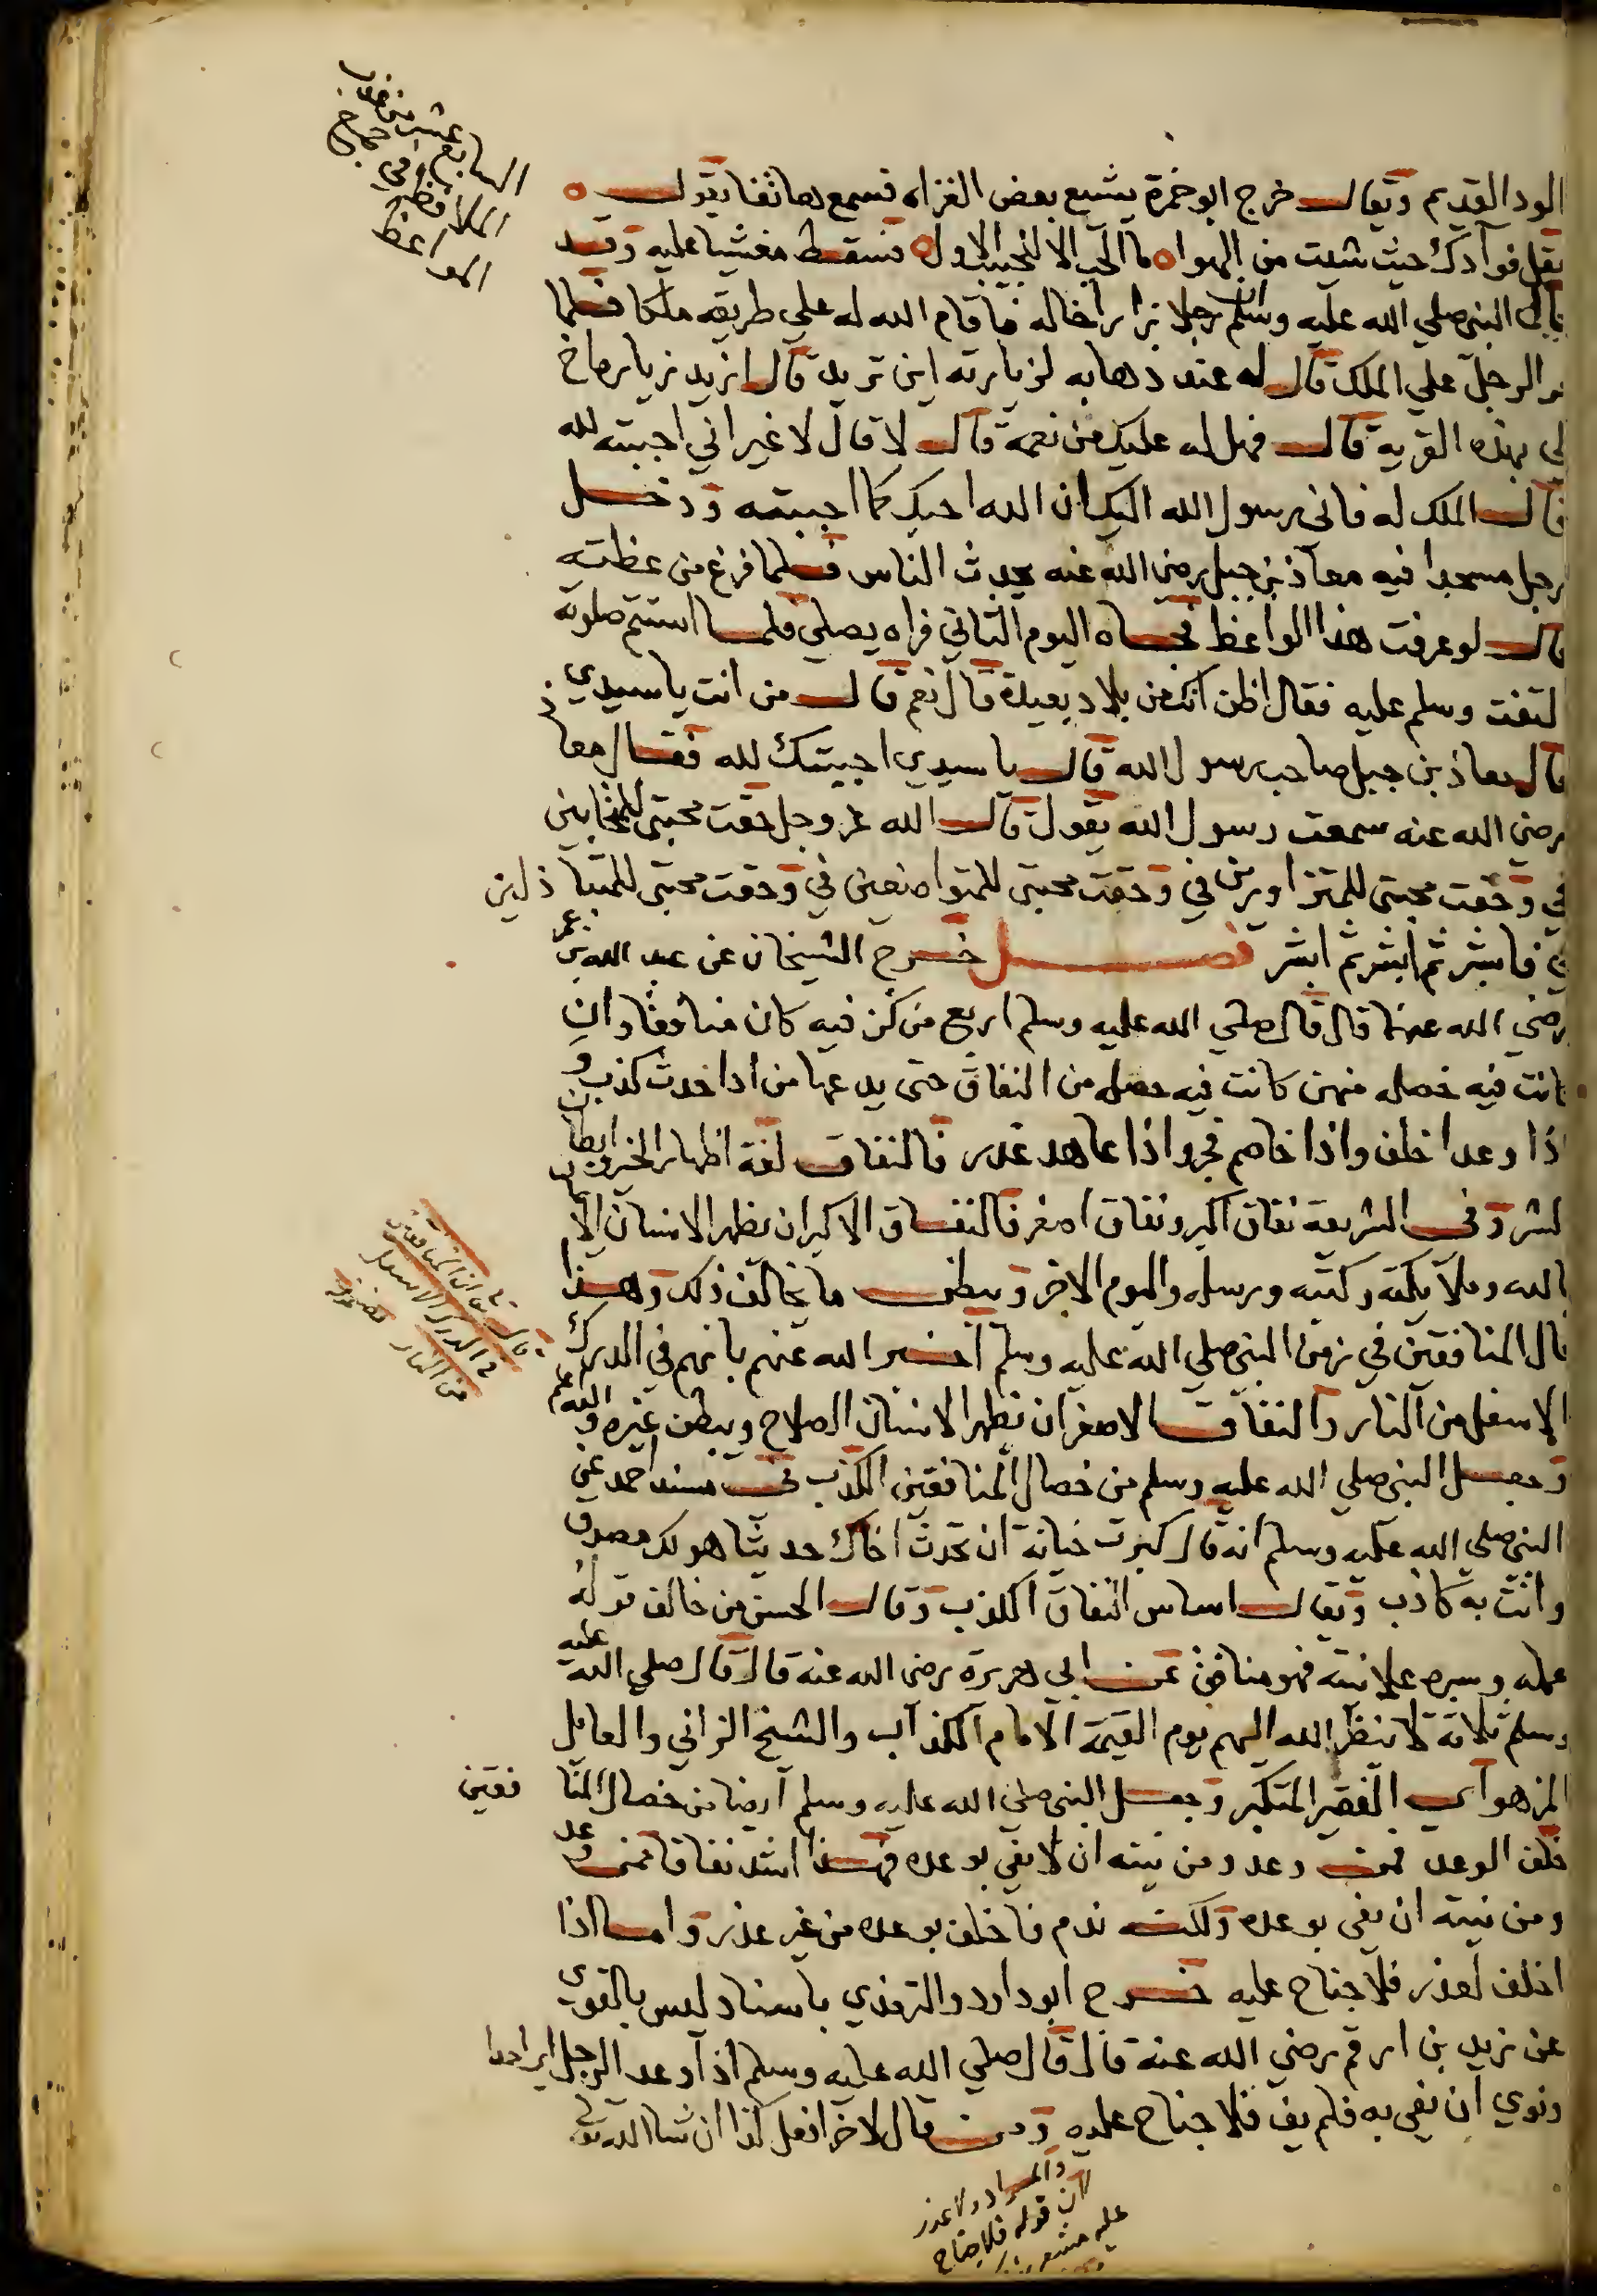 السابع عشر من
الملاقظ في
المواعظ
الود القديم ويقال خرج ابو حمزة يشيع بعض الغزاه فسمع هاتفا يقول
نقل فوآدك حيث شئت من الهوا ما الحب الا للحبيب الاول فسقط مغشيا عليه وقد
قال النبي صلي الله عليه وسلم ان رجلا زار اخا له فاقام الله له علي طريقه ملكا فلما
مر الرجل علي الملك قال له عند ذهابه لزيارته اين تريد قال ازيد زيارة اخ
لي بهذه القرية قال فهل له عليك من نعمة قال لا قال لا غير اني احببته لله
قال الملك له فاني رسول الله اليك ان الله احبك كما احببته ودخل
رجل مسجدا فيه معاذ بن جبل رضي الله عنه يحدث الناس فلما فرغ من عظته
قال لو عرفت هذا الواعظ فجاه اليوم الثاني فراه يصلي فلما استتم صلوته
لتفت وسلم عليه فقال اظن انك من بلاد بعيدة قال نعم قال من انت يا سيدي
قال معاذ بن جبل صاحب رسول الله قال يا سيدي احببتك لله فقال معاذ
رضي الله عنه سمعت رسول الله يقول قال الله عز وجل حقت محبتي للمتحابين
في وحقت محبتي للمتزاورين في وحقت محبتي للمتواضعين في وحقت محبتي للمتباذلين
في فابشر ثم ابشر ثم ابشر فصل خرج الشيخان عن عبد الله بن عمر
رضي الله عنهما قال قال صلي الله عليه وسلم اربع من كن فيه كان منافقا وان
كانت فيه خصله منهن كانت فيه خصله من النفاق حتي يدعها من اذا حدث كذب و
اذا وعد اخلف واذا خاصم فجر واذا عاهد غدر فالنفاق لغة اظهار الخير وابطان
لشر وفي الشريعة نفاق اكبر ونفاق اصغر فالنفاق الاكبر ان يظهر الانسان الايمان
بالله وملآيكته وكتبه ورسله واليوم الاخر ويبطن ما يخالف ذلك وهذا
قال المنافقين في زمن النبي صلي الله عليه وسلم اخبر الله عنهم بانهم في الدرك
قال تع ان المنافقين
في الدرك الاسفل
من النار
الاسفل من النار والنفاق الاصغر ان يظهر الانسان الصلاح ويبطن غيره والله اعلم
وجعل النبي صلي الله عليه وسلم من خصال المنافقين الكذب في مسند احمد عن
النبي صلي الله عليه وسلم انه قال كبرت خيانة ان تحدث اخاك حديثا هو لك مصدق
وانت به كاذب ويقال اساس النفاق الكذب وقال الحسن من خالف قوله
عمله وسره علانيته فهو منافق عن ابي هريرة رضي الله عنه قال قال صلي الله عليه
وسلم ثلاثة لا ينظر الله اليهم يوم القيمة الامام الكذاب والشيخ الزاني والعائل
المزهو اي الفقير المتكبر وجعل النبي صلي الله عليه وسلم ايضا من خصال المنافقين
خلف الوعد فمن وعد ومن نيته ان لا يفي بوعده فهذا اشد نفاقا ممن وعد
ومن نيته ان يفي بوعده ولكنه ندم فاخلف بوعده من غير عذر واما اذا
اخلف لعذر فلا جناح عليه خرج ابو داود والترمذي باسناد ليس بالقوي
عن زيد بن ارقم رضي الله عنه قال قال صلي الله عليه وسلم اذا وعد الرجل
ونوي ان يفي به فلم يف فلا جناح عليه ومن قال لاخر افعل كذا ان شا الله تع
والمراد ولا عذر
لان قوله فلا جناح
عليه مشعر